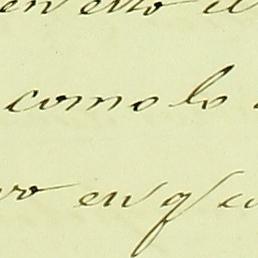 en esto
como lo
en qu